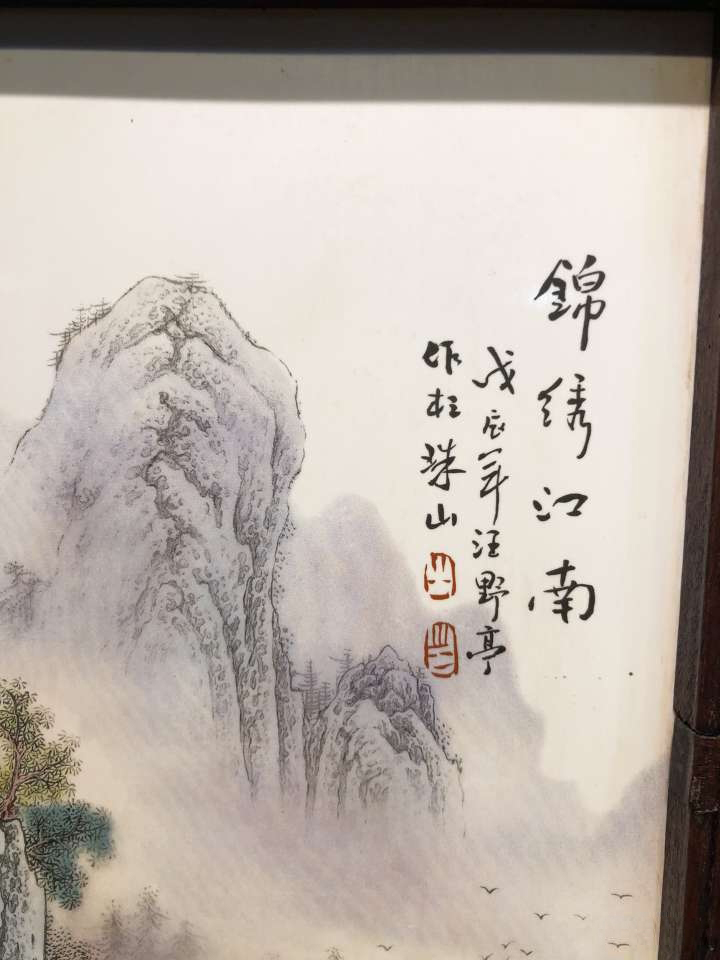 錦绣江南
戊辰年汪野亭
作於珠山